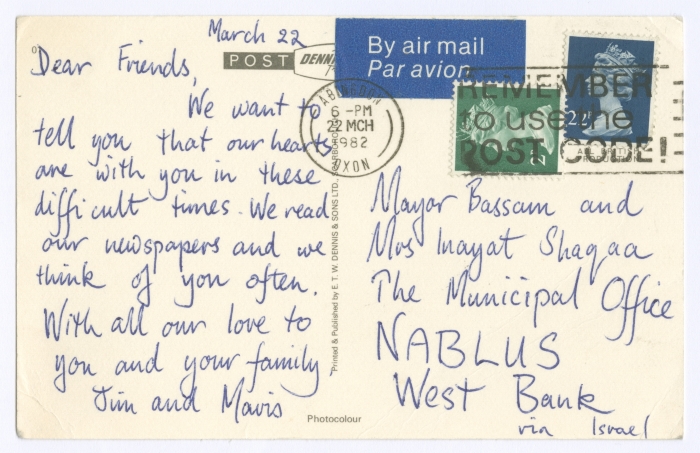 March 22
POST
DENNIS
By air mail
Par avion
Dear Friends,
We want to
tell you that our hearts
are with you in these
difficult times. We read
our newspapers and we
think of you often.
With all our love to
you and your family
Jim and Mavis
ABINGDON
6 - PM
22 MCH
1982
OXON
REMEMBER
to use the
POST CODE!
22P
Printed & Published by E. T. W. DENNIS & SONS LTD.,
Mayor Bassam and
Mrs Inayat Shaqaa
The Municipal Office
NABLUS
West Bank
via Israel
Photocolour